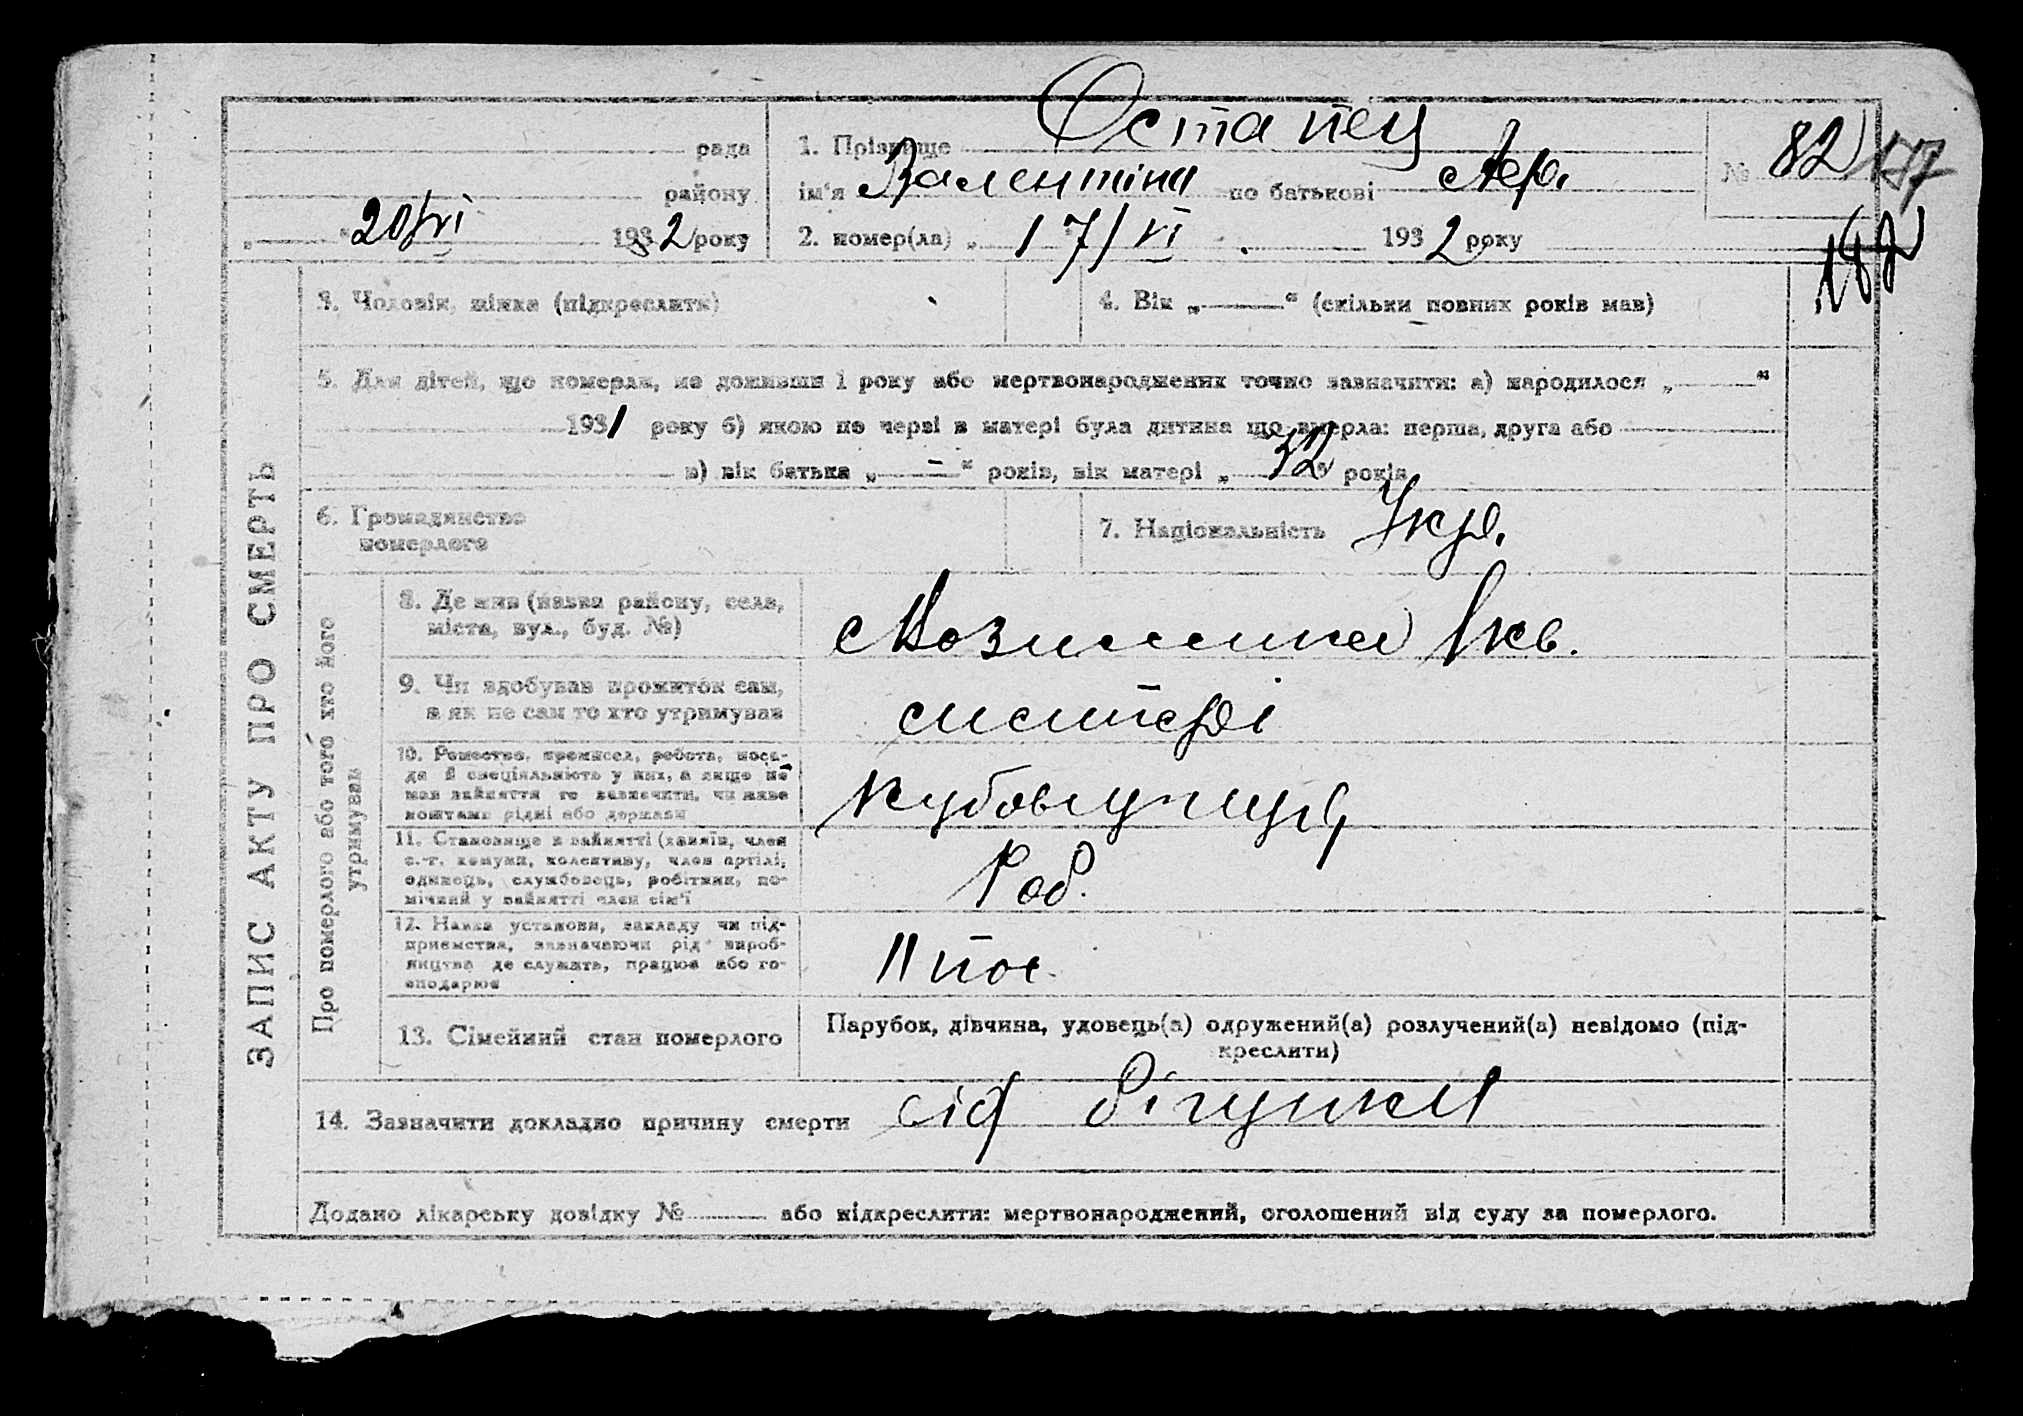 рада
району
„ “ 20/VI 1932 року
1. Прізвище Остапец
ім'я Валентіна по батькові
2. помер(ла) „ 17/VI 1932 року
№ 82
3. Чоловік, жінка (підкреслити)
4. Вік „ “ (скільки повних років мав)
5. Для дітей, що померли, не доживши 1 року або мертвонароджених точно зазначити: а) народилося „ “
1931 року б) якою по черзі в матері була дитина що вмерла: перша, друга або
в) вік батька „ - “ років, вік матері „ 32 “ років
6. Громадянство
померлого
7. Національність Укр.
ЗАПИС АКТУ ПРО СМЕРТЬ
Про померлого або того хто його
утримував
8. Де жив (назва району, села,
міста, вул., буд. №)
9. Чи здобував прожиток сам,
а як не сам то хто утримував
матері
10. Ремество, промисел, робота, поса-
да й спеціяльність у них, а якщо не
мав зайняття то зазначити, чи живе
коштами рідні або держави
11. Становище в зайнятті (хазяїн, член
с.-г. комуни, колективу, член артілі,
одинець, службовець, робітник, по-
мічний у зайнятті член сім'ї
Роб.
12. Назва установи, закладу чи під-
приємства, зазначаючи рід вироб-
ництва де служить, працює або го-
сподарює
13. Сімейний стан померлого
Парубок, дівчина, удовець(а) одружений(а) розлучений(а) невідомо (під-
креслити)
14. Зазначити докладно причину смерти від бігунки
Додано лікарську довідку № або підкреслити: мертвонароджений, оголошений від суду за померлого.